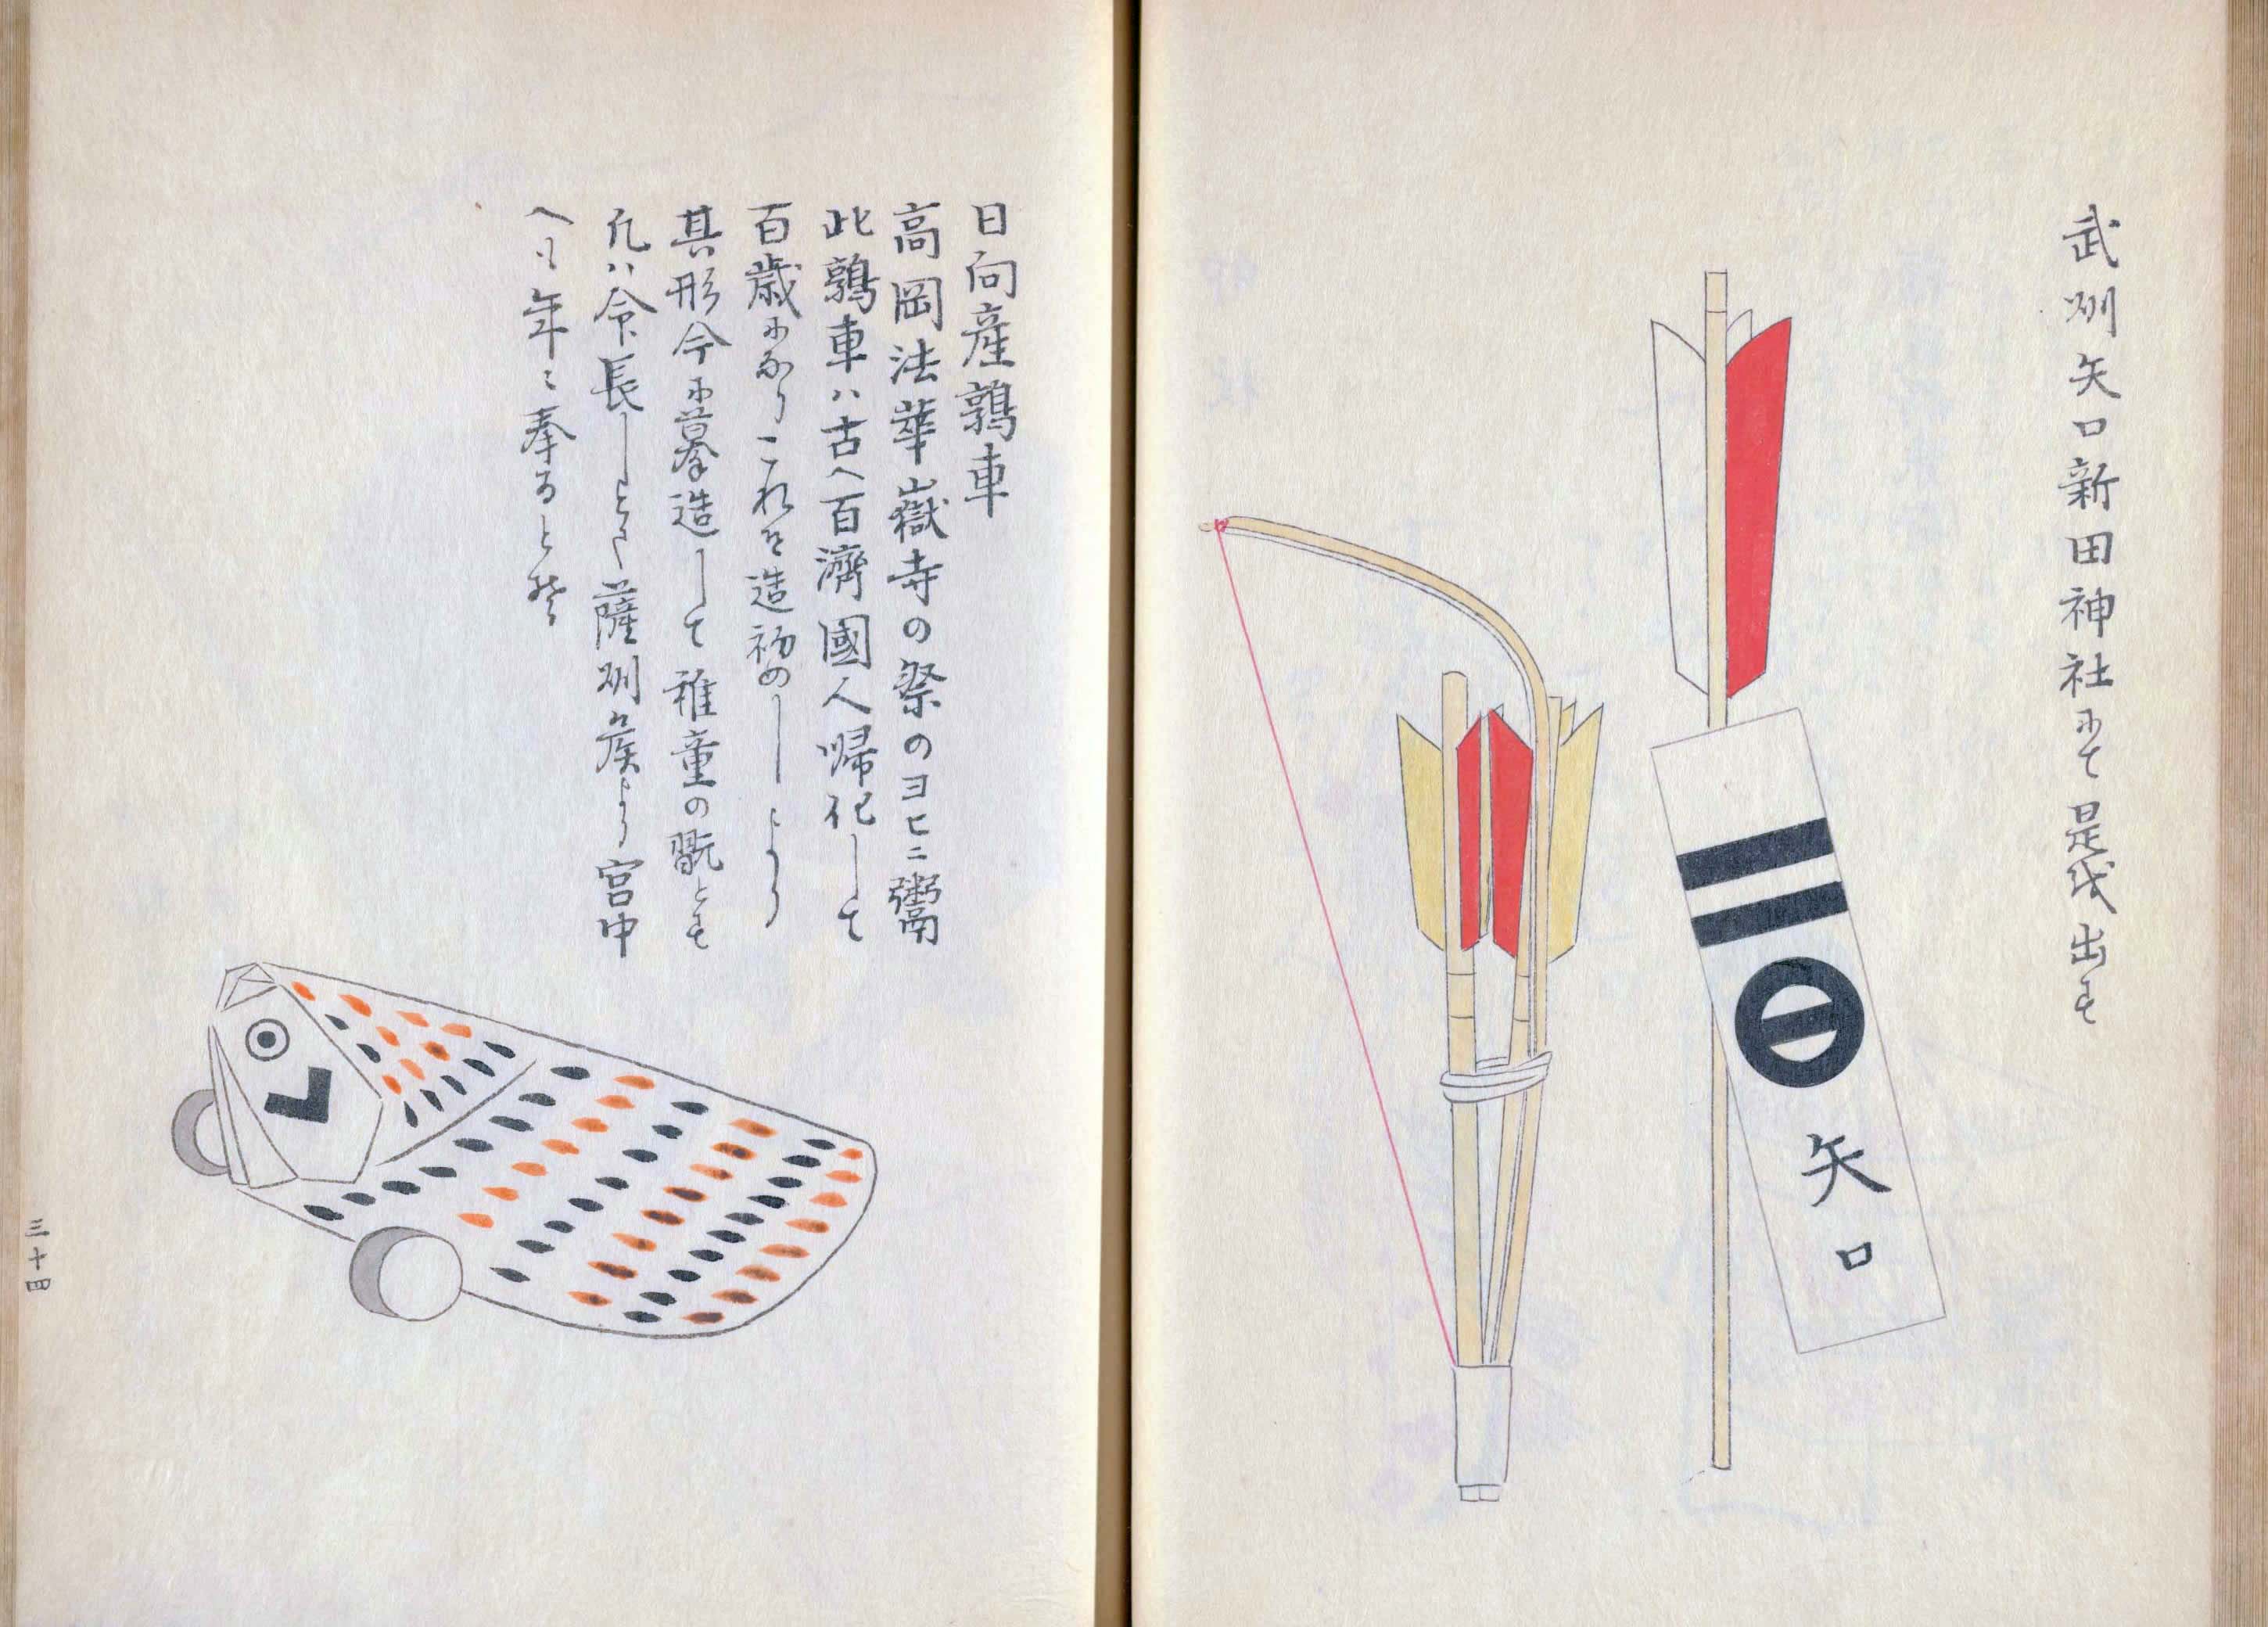 武州矢口新田神社にて是を出す
矢口
日向産鶉車
高岡法華嶽寺の祭のヨヒニ鬻
此鶉車ハ古へ百濟國人帰化して
百歳になりこれを造初めしより
其形今に摹造して稚童の翫とす
凡ハ命長しとて薩州矦より宮中
へも年〻奉るとぞ
三十四